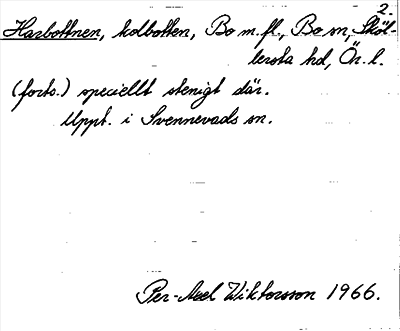 2.
Harbottnen, kolbotten, Bo m.fl., Bo sn, Sköl-
lersta hd, Ör. l.
(forts.) speciellt stenigt där.
Uppt. i Svennevads sn.
Per-Axel Wiktorsson 1966.